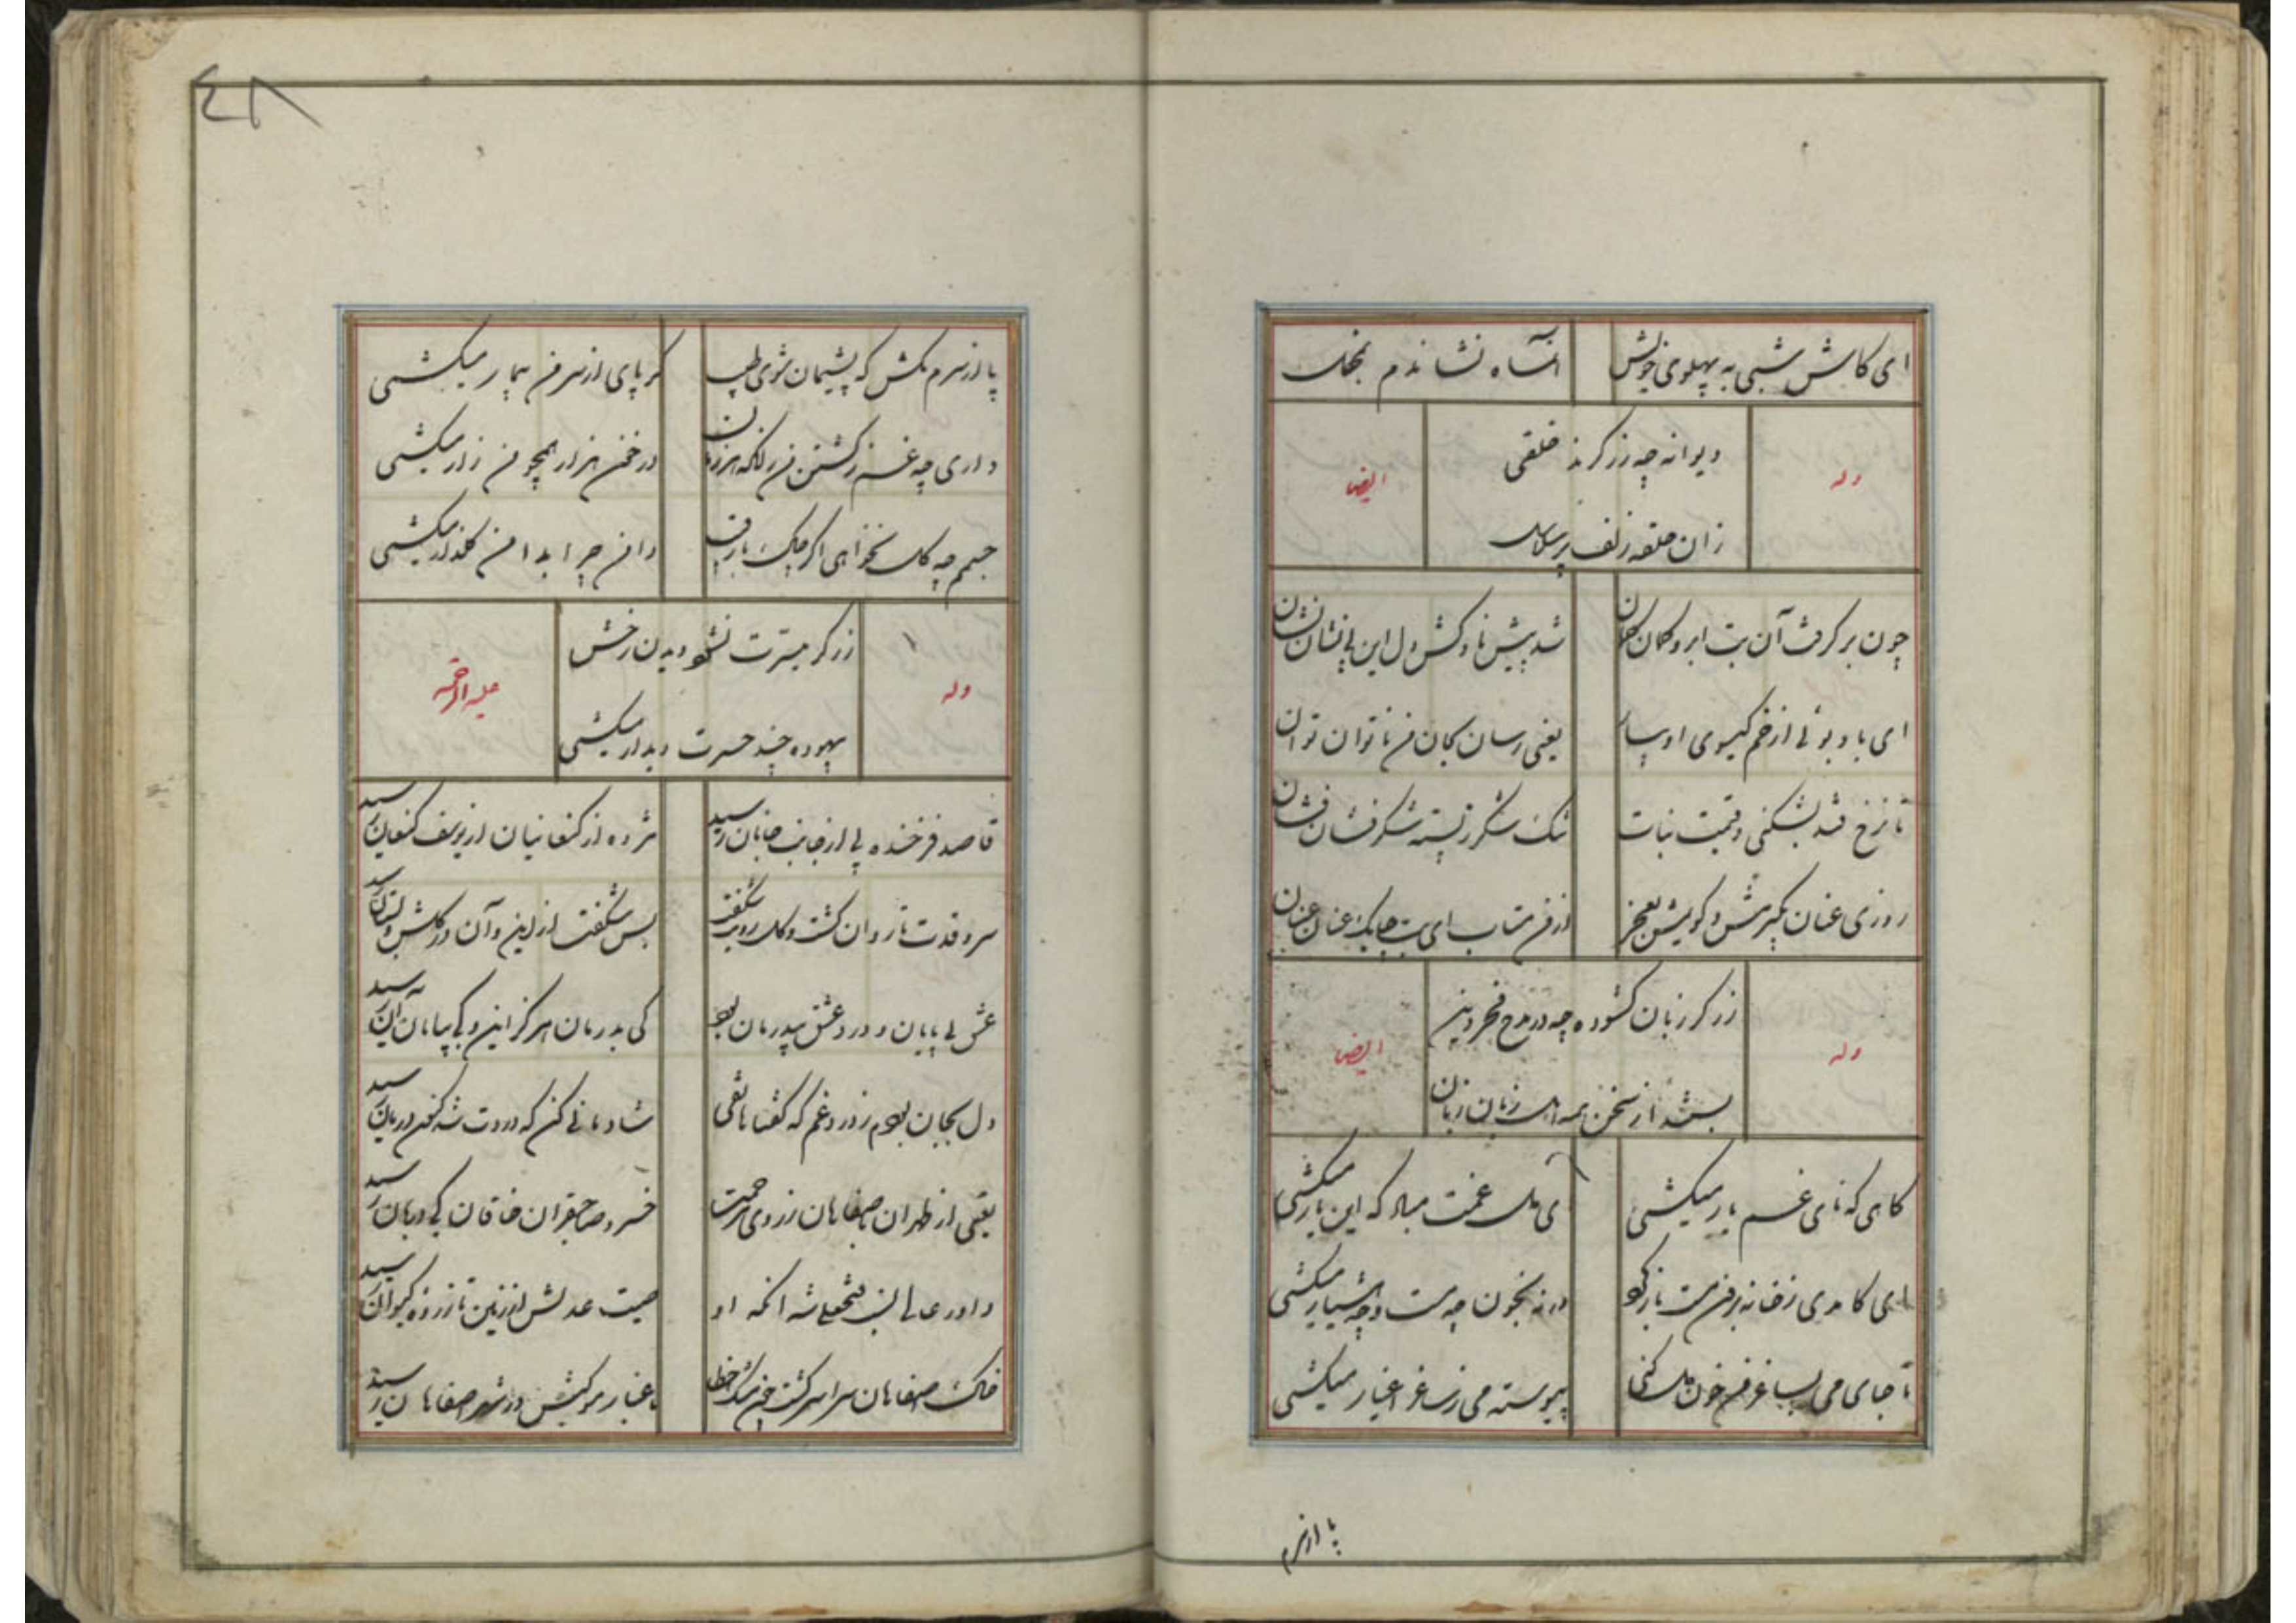 ای کاش شبی به پهلوی خویش آن شاه نشاندم بخلوت
وله دیوانه چه زرگرند خلقی ایضا
زان حلقه زلف پرسلاسل
چون برگرفت آن بت ابرو کمان کمان شد پیش ناوکش دل این بی نشان نشان
ای باد بوئی از خم گیسوی او بیار یعنی رسان بجان من ناتوان توان
تا نرخ قند بشکنی و قیمت نبات تنگ شکر ز پسته شکر فشان فشان
روزی عنان بگیرمش و گویمش بعجز از من متاب ای بت چابک عنان عنان
وله زرگر زبان گشوده چه در مدح فخر دین ایضا
بستند از سخن همه اهل زبان زبان
گاهی که نای غم یار میکشی ای دل غمت مباد که این بار میکشی
ای کامدی ز خانه برون مست بازگو در خون چه مست و چه هشیار میکشی
تا جای می بساغر من خون دل کنی پیوسته می ز ساغر اغیار میکشی
پا از سرم
٤٨
پا از سرم مکش که پشیمان شوی طبیب گر پای از سر من بیمار میکشی
داری چه غم ز کشتن من زانکه هر زمان در خون هزار همچو من زار میکشی
جیبم چه گل نخواهی اگر چاک یار من دامن چرا بدامن گلزار میکشی
وله زرگر میسرت نشود دیدن رخش علیه الرحمه
بیهوده چند حسرت دیدار میکشی
قاصد فرخنده پی از جانب جانان رسید مژده از کنعانیان از یوسف کنعان رسید
سرو قدت تا روان گشت و گل رویت شکفت بس شکفت از این و آن در گلشن و بستان رسید
عشق بی پایان و درد عشق بیدرمان بود کی بدرمان هرگز این و کی بپایان آن رسید
دل بجان بودم ز درد و غم که گفتا هاتفی شادمانی کن که دردت شد کنون درمان رسید
یعنی از طهران باصفاهان ز روی مرحمت خسرو صاحبقران خاقان کی دربان رسید
داور عالی نسب فتحعلی شه آنکه او صیت عدلش از زمین تا زروه کیوان رسید
خاک صفاهان سراسر گشت چون مشک خطا تا غبار موکبش در شهر اصفاهان رسید